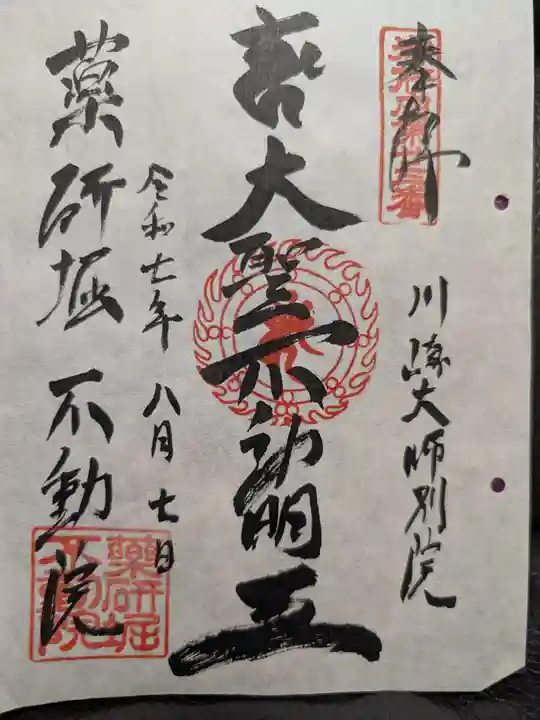 奉拝
川崎大師別院
大聖不動明王
令和七年八月七日
薬研堀不動院
薬研堀不動院